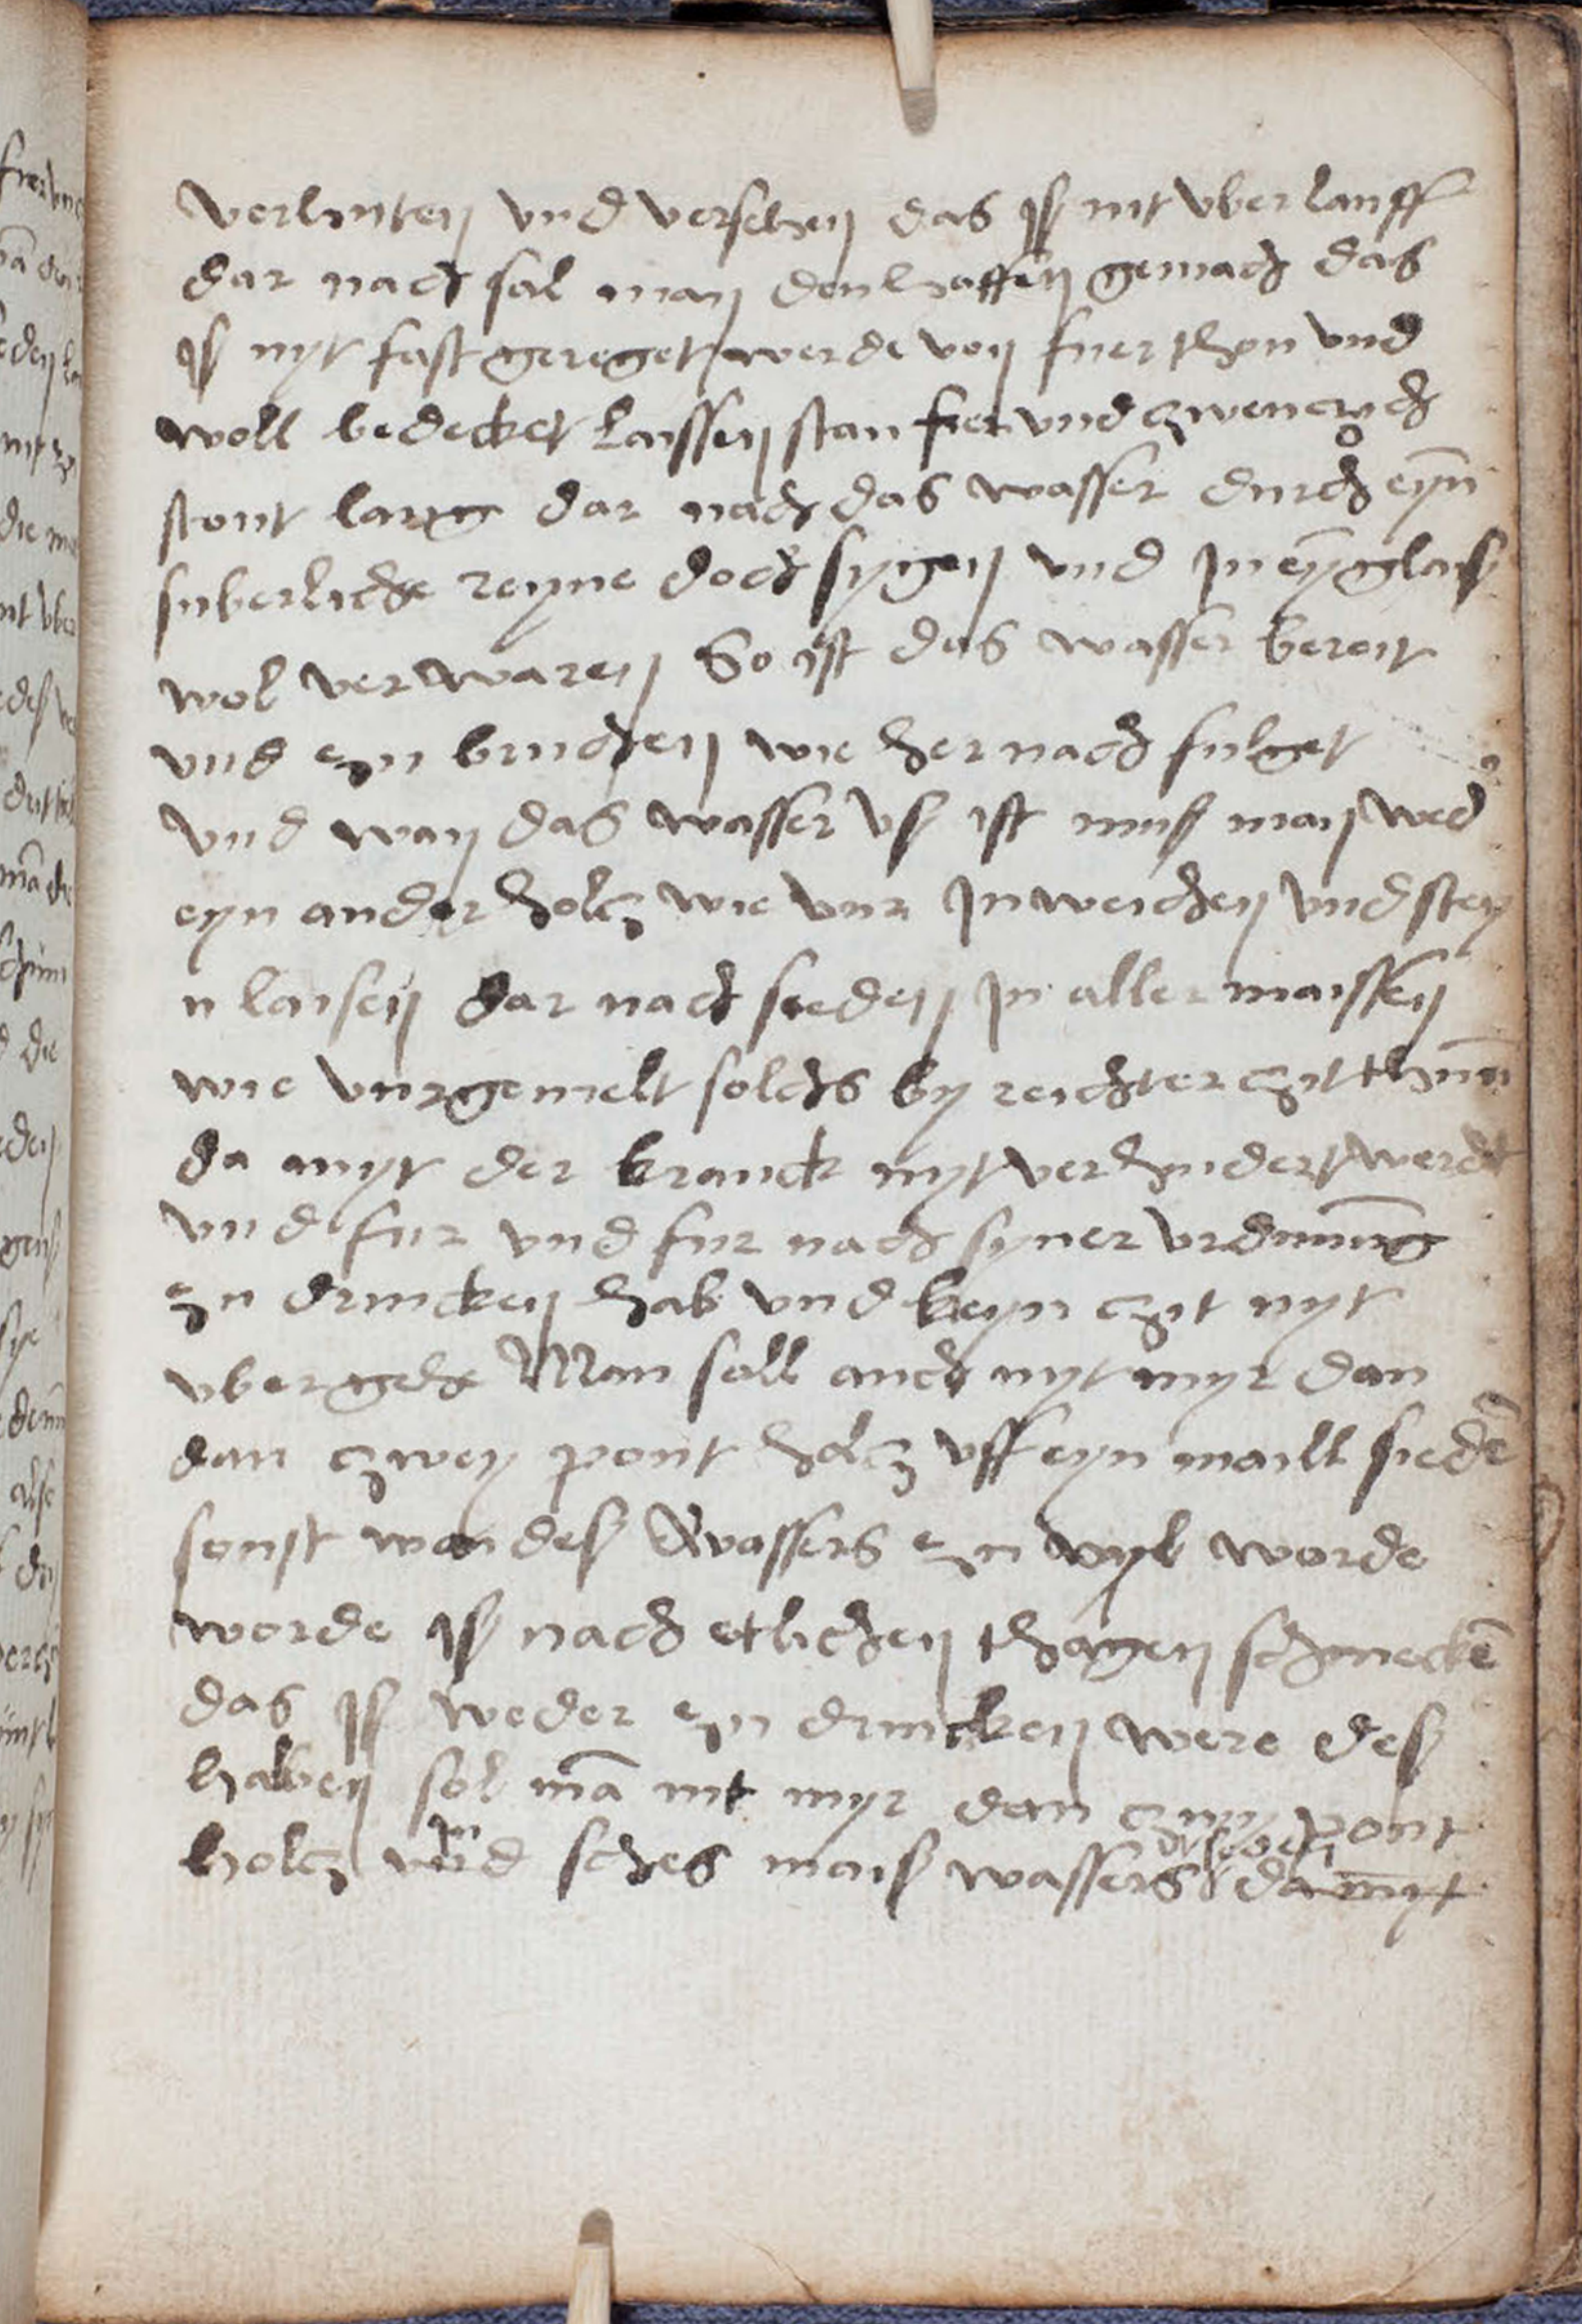 verlinten vnd versehen das iß nit vber lauff
dar nach sal man den haffen gemach das
iß nyt fast gereget werde von fuer thon vnd
woll bedecket laissen stan fier vnd zwenczich
stont lang dar nach das wasser durch eyn̄
suberliche reyne doch sygen vnd In eȳ glaiß
wol verwaren So ist das wasser bereit
vnd zu bruchen wie her nach fulget
vnd wan das wasser vß ist muß man wed
eyn ander holcz wie vur In weichen vnd stey
n laisen dar nach sieden In aller maissen
wie vurgemelt solchs by reichter czit thun̄
da myt der kranck nyt verhindert werdt
vnd fur vnd fur nach syner vrdnūng
zu drincken hab vnd keyn czit nyt
vbergehe Man soll auch nyt myr dan
dan czwey pont holcz vff eyn maill siedē
sonst wan des wassers zu vyl worde
worde iß nach etlichen thagen schmeckē
das iß weder zu drincken were deß
halben sol mā nit myr dan czwy pont
holcz vnd sches maiß wassers da myt